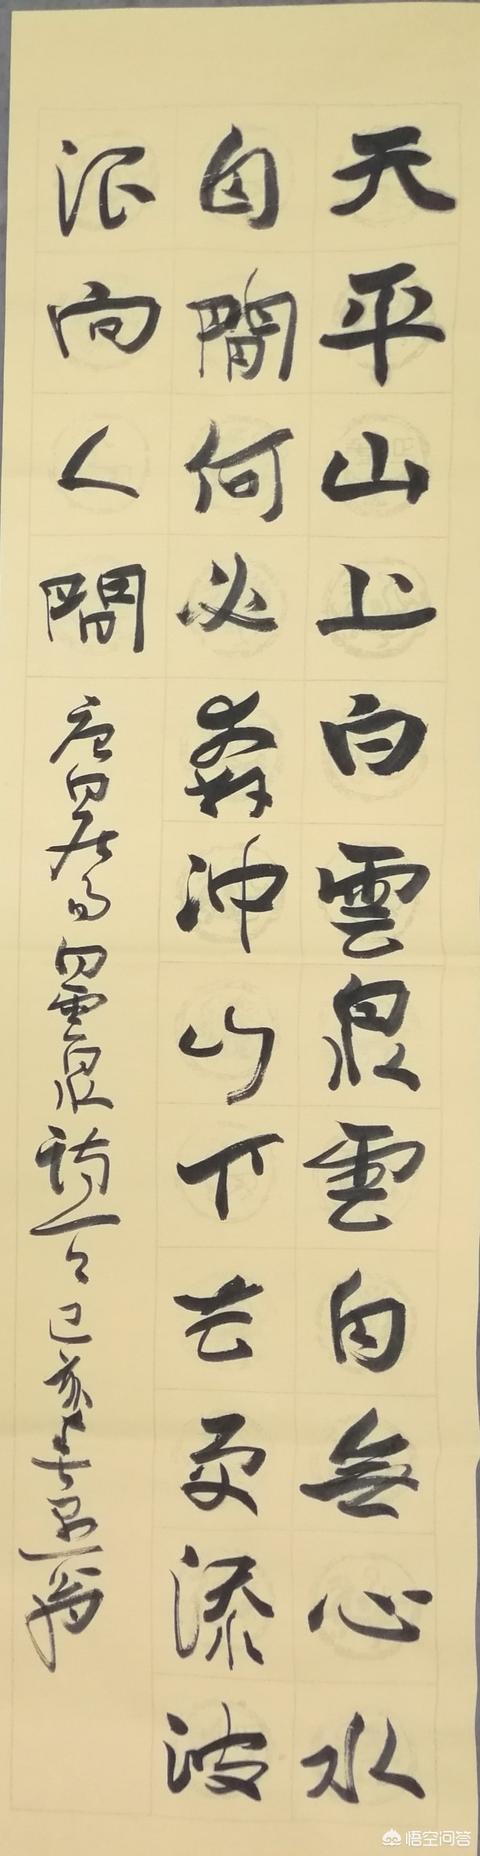 天平山上白雲泉雲自無心水
自閒何必奔沖山下去更添波
浪向人間 唐白居易白雲泉詩一首己亥
悟空问答